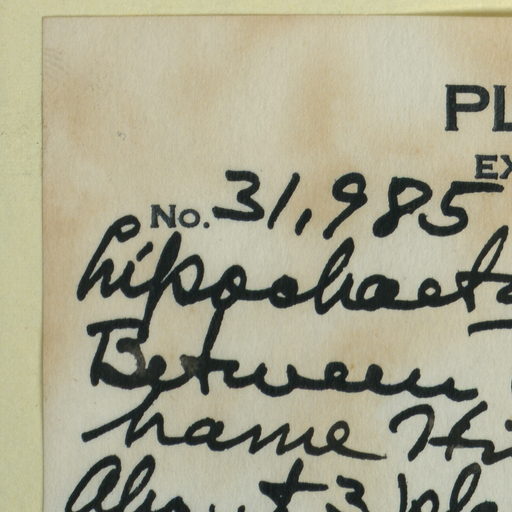 PL
EX
No. 31,985
Lipochaeta
Between
name Hi
About 3